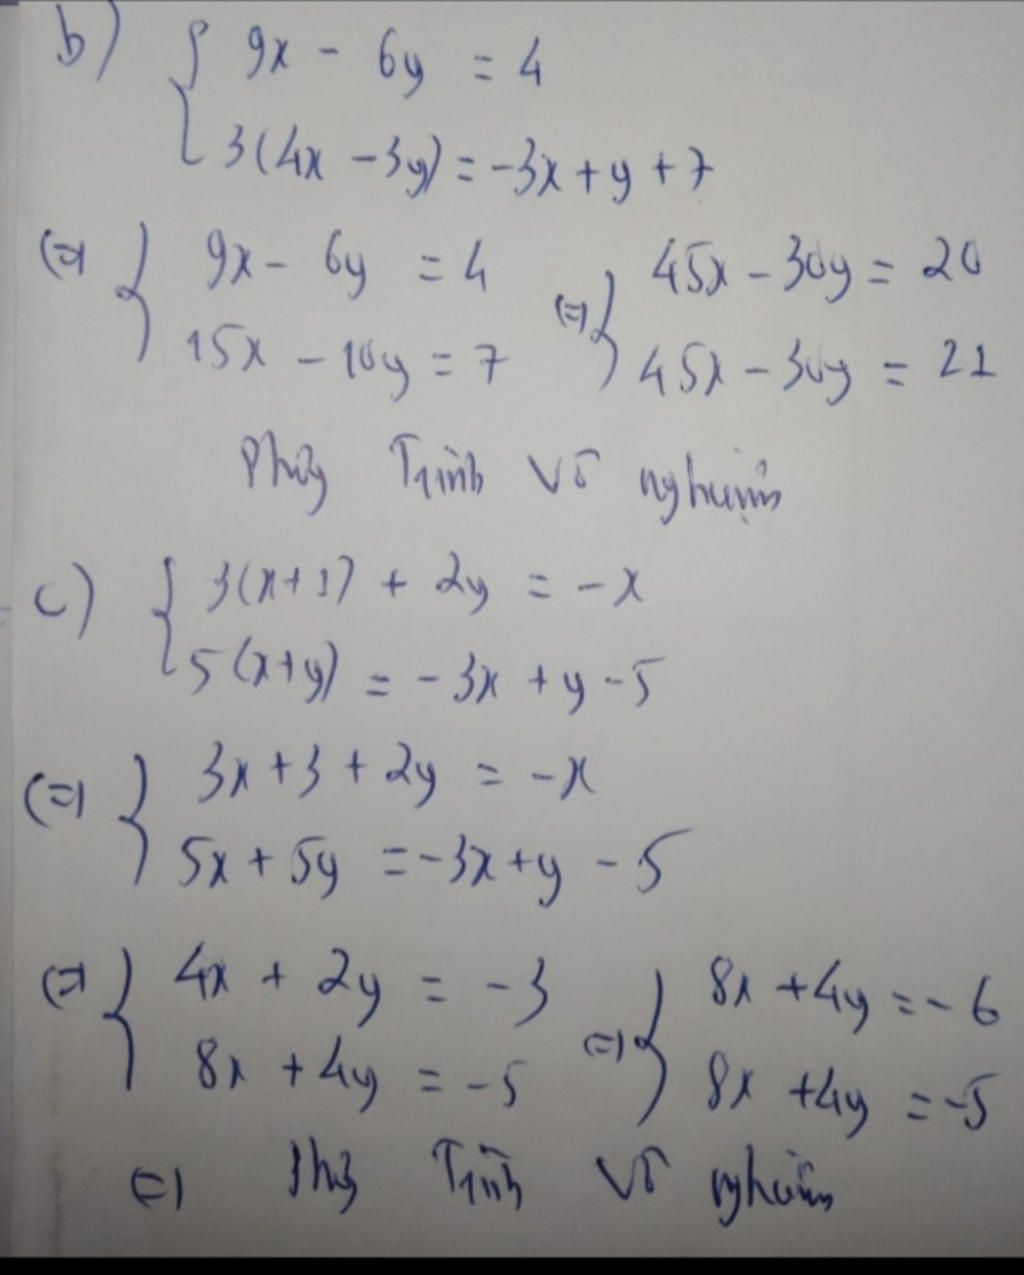 b) { 9x - 6y = 4
3(4x - 3y) = -3x + y + 7
(=) { 9x - 6y = 4 (=) { 45x - 30y = 20
15x - 10y = 7 45x - 30y = 21
Trình vô nghiệm
c) { 3(x+1) + 2y = -x
5(x+y) = -3x + y - 5
(=) { 3x + 3 + 2y = -x
5x + 5y = -3x + y - 5
(=) { 4x + 2y = -3 (=) { 8x + 4y = -6
8x + 4y = -5 8x + 4y = -5
(=) Trình vô nghiệm